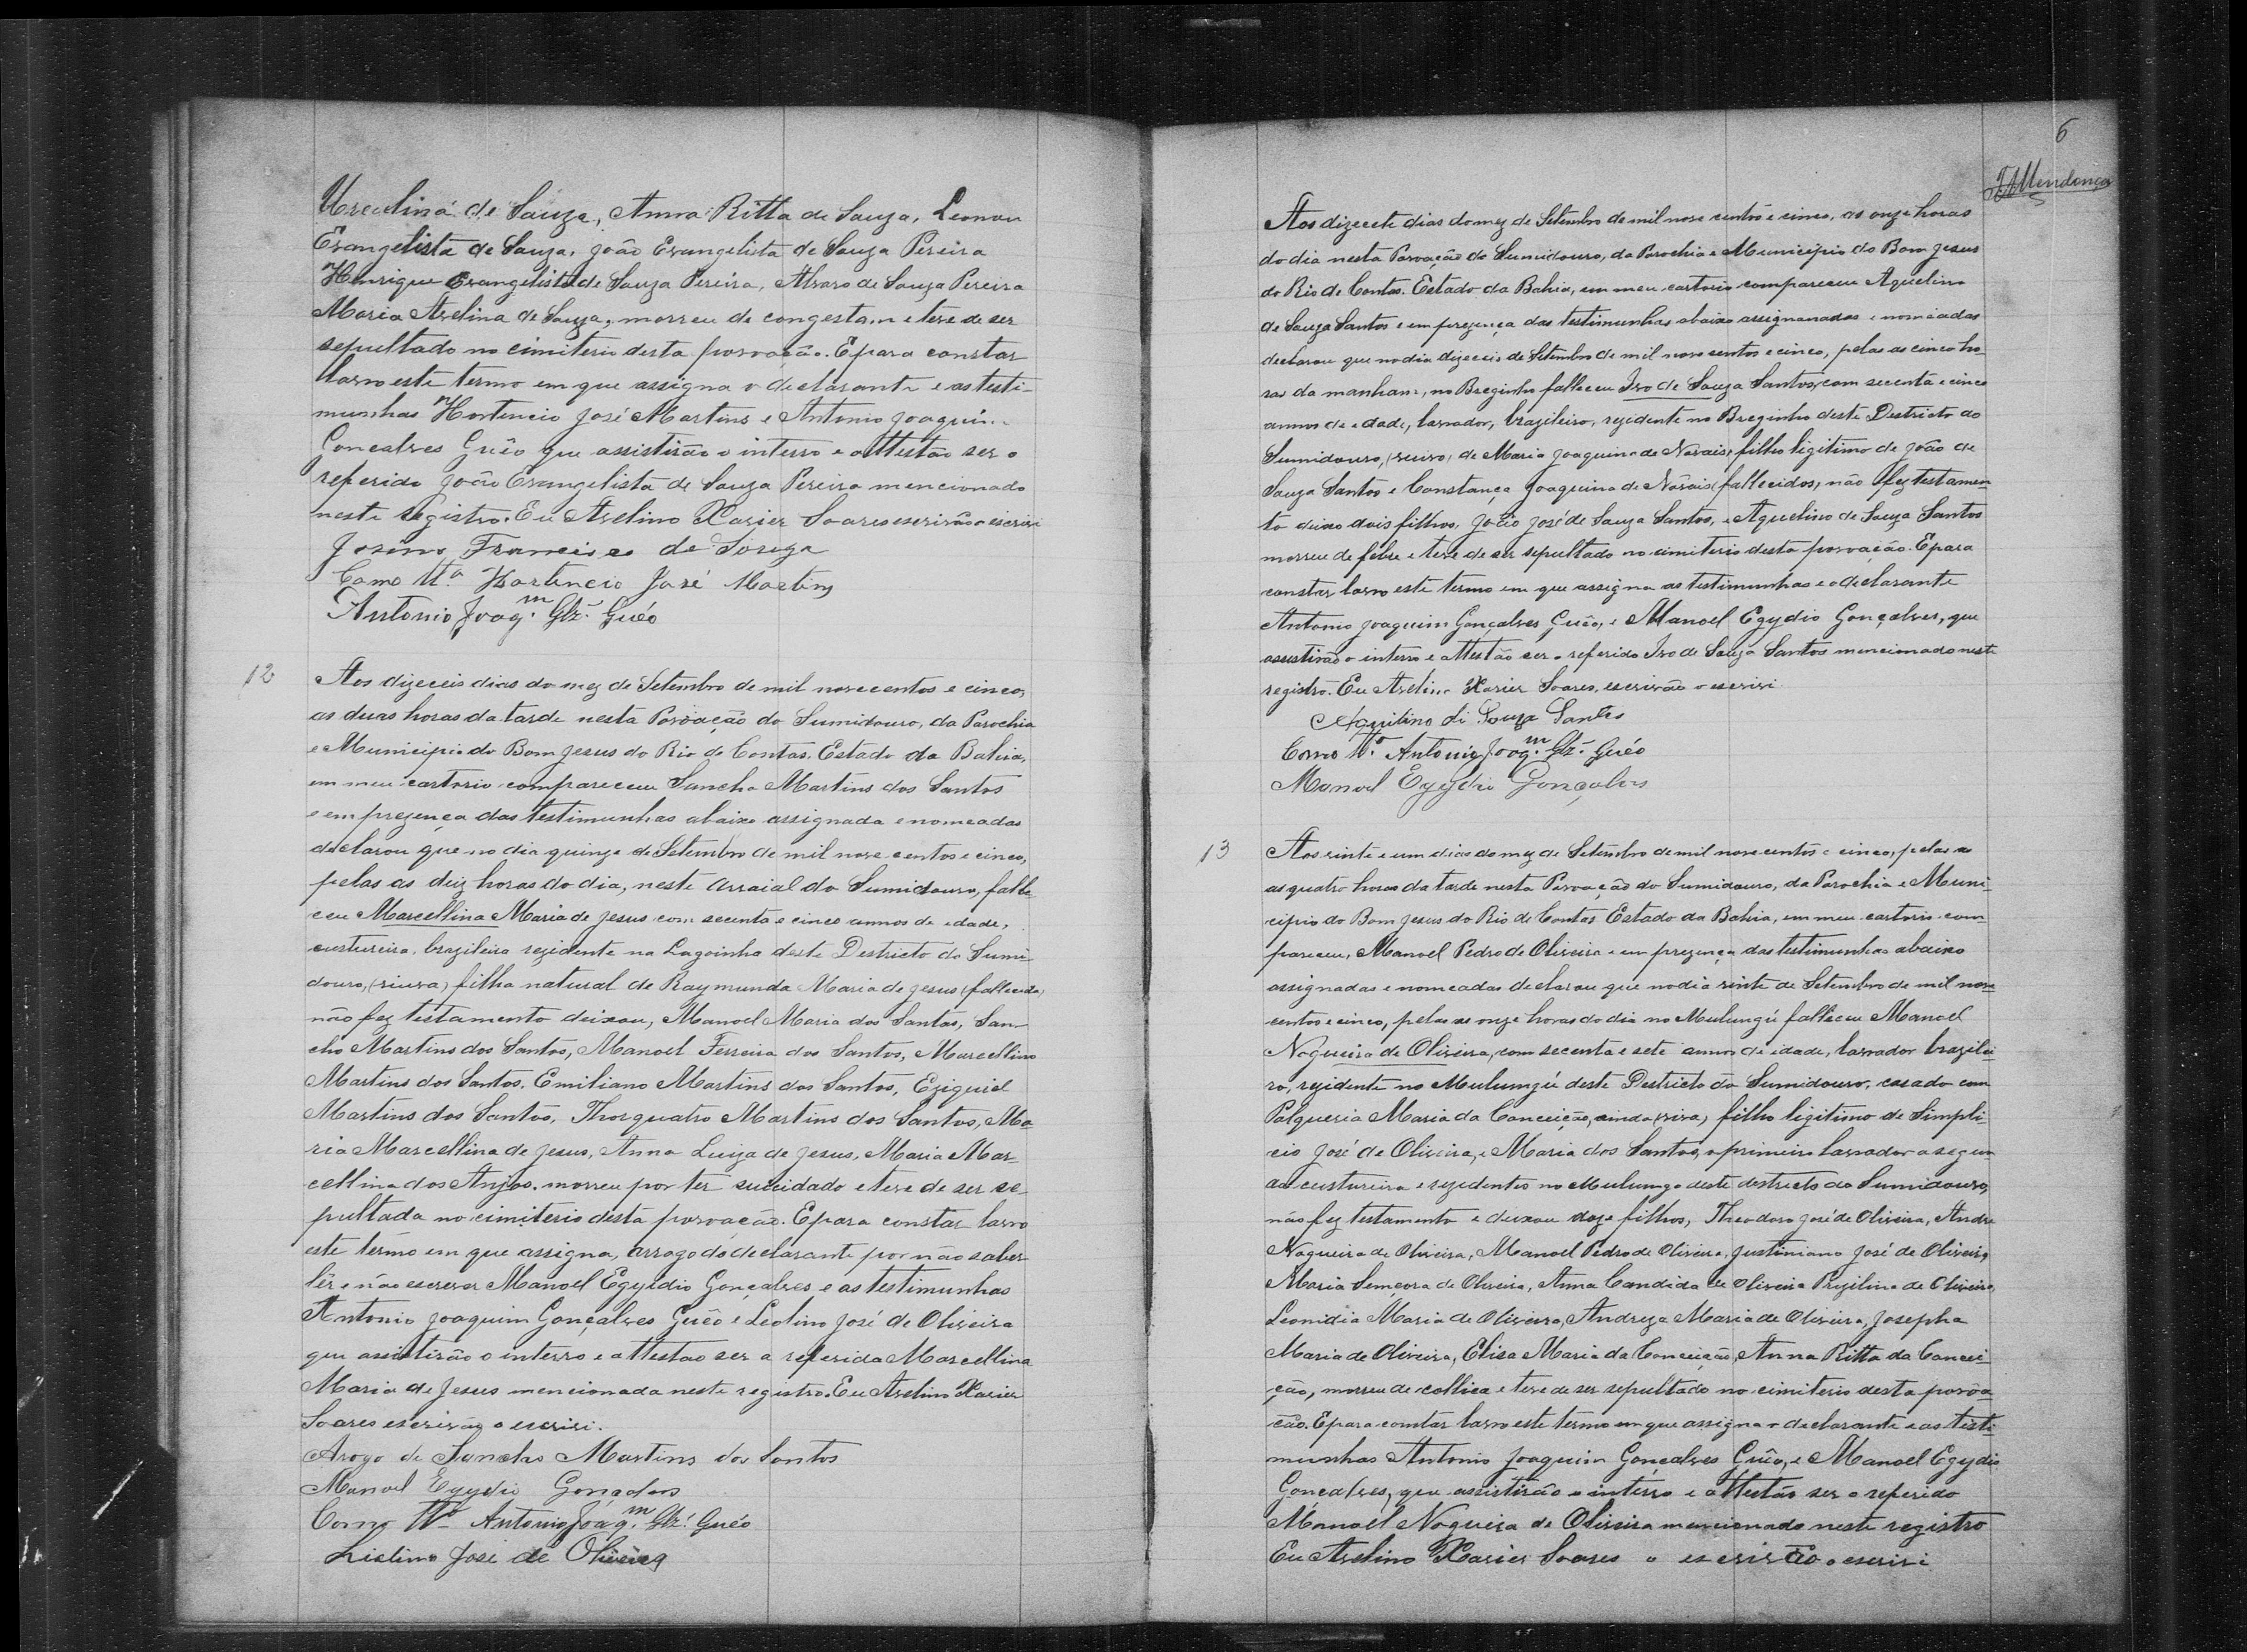 Urculina de Souza, Anna Ritta de Souza, Leonou
Evangelista de Souza, João Evangelista de Souza Pereira
Henrique Evangelista de Souza Pereira, Alvaro de Souza Pereira
Maria Avelina de Souza, morreu de congestam e teve de ser
sepultado no cimiterio desta povoação. E para constar
lavro este termo em que assigna o declarante e as testi-
munhas Hortencio José Martins e Antonio Joaquim
Goncalves Guêo que assistirão o interro e attestão ser o
referido João Evangelista de Souza Pereira mencionado
neste registro. Eu Avelino Xavier Soares escrivão o escrivi
Josino Francisco de Souza
Como tta Hortencio José Martins
Antonio Joaqm. Glz. Guéo
12
Aos dizeceis dias do mez de Setembro de mil novecentos e cinco,
as duas horas da tarde nesta Povoação do Sumidouro, da Parochia
e Municipio do Bom Jesus do Rio de Contas. Estado da Bahia,
em meu cartorio compareceu Sancho Martins dos Santos
e em prezença das testimunhas abaixo assignada e nomeadas
declarou que no dia quinze de Setembro de mil nove centos e cinco,
pelas as deiz horas do dia, neste arraial do Sumidouro, falle
ceu Marcellina Maria de Jesus com secenta e cinco annos de edade,
custureira, brazileira rezidente na Lagoinha deste Destricto do Sumi-
douro, (viuva) filha natural de Raymunda Maria de Jesus (fallecida)
não fez testamento deixou, Manoel Maria dos Santos, San-
cho Martins dos Santos, Manoel Ferreira dos Santos, Marcellino
Martins dos Santos. Emiliano Martins dos Santos, Eziquiel
Martins dos Santos, Thorquatro Martins dos Santos, Ma-
ria Marcellina de Jesus, Anna Luiza de Jesus, Maria Mar-
cellina dos Anjos. morreu por ter suicidado e teve de ser se-
pultada no cimiterio desta povoação. E para constar lavro
este termo em que assigna, arrogo do declarante por não saber
lêr e não escrever Manoel Egydio Gonçalves e as testimunhas
Antonio Joaquim Gonçalves Guêo e Leolino José de Oliveira
que assistirão o interro e attestao ser a referida Marcellina
Maria de Jesus mencionada neste registro. Eu Avelino Xavier
Soares escrivão o escrivi.
Arogo de Sancho Martins dos Santos
Manoel Egydio Gonçalves
Como tta Antonio Joaqm. Glz. Guéo
Liolino José de Oliveira
6
Aos dizecete dias do mez de Setembro de mil nove centos e cinco, as onze horas
do dia nesta Povoação do Sumidouro, da Parochia e Municipio do Bom Jesus
do Rio de Contas. Estado da Bahia, em meu cartorio compareceu Aquelino
de Souza Santos e em prezença das testimunhas abaixo assignanadas e nomeadas
declarou que no dia dizeceis de Setembro de mil nove centos e cinco, pelas as cinco ho
ras da manham, no Breginho falleceu Ivo de Souza Santos, com secenta e cinco
annos de edade, lavrador, brazileiro, rezidente no Breginho deste Destricto do
Sumidouro, (viuvo) de Maria Joaquina de Novais, filho legitimo de João de
Souza Santos e Constança Joaquina de Novais (fallecidos), não fez testamen
to deixo dois filhos, João José de Souza Santos, e Aquelino de Souza Santos
morreu de febre e teve de ser sepultado no cimiterio desta povoação. E para
constar lavro este termo em que assigna as testimunhas e o declarante
Antonio Joaquim Gonçalves Guêo, e Manoel Egydio Gonçalves, que
assistirão o interro e attestão ser o referido Ivo de Souza Santos mencionado neste
registro. Eu Avelino Xavier Soares, escrivão o escrivi
Aquilino di Souza Santos
Como tta Antonio Joaqm. Glz. Guéo
Manoel Egydio Gonçalves
13
Aos vinte e um dias do mez de Setembro de mil nove centos e cinco, pelas as
as quatro horas da tarde nesta Povoação do Sumidouro, da Parochia e Muni-
cipio do Bom Jesus do Rio de Contas Estado da Bahia, em meu cartorio com-
pareceu, Manoel Pedro de Oliveira e em prezença das testimunhas abaixo
assignadas e nomeadas declarou que no dia vinte de Setembro de mil nove
centos e cinco, pelas as onze horas do dia no Mulungú falleceu Manoel
Nogueira de Oliveira, com secenta e sete annos de idade, lavrador brazilei
ro, rezidente no Mulungú deste Destricto do Sumidouro, casado com
Palqueria Maria da Conceição, ainda (viva) filho ligitimo de Simpli-
cio José de Oliveira, e Maria dos Santos, o primeiro lavrador a segun
da custureira e rezidentes no Mulungo deste destricto do Sumidouro,
não fez testamento e deixou doze filhos, Theodoro José de Oliveira, Andre
Nogueira de Oliveira, Manoel Pedro de Oliveira, Justiniano José de Oliveira,
Maria Semeora de Oliveira, Anna Candida de Oliveira Prezilina de Oliveira,
Leonidia Maria de Oliveira, Andreza Maria de Oliveira, Josepha
Maria de Oliveira, Elisa Maria da Conceição, Anna Ritta da Concei-
ção, morreu de collica e teve de ser sepultado no cimiterio desta povoa
ção. E para constar lavro este termo em que assigna o declarante e as testi-
munhas Antonio Joaquim Gonçalves Guêo, e Manoel Egydio
Goncalves, que assistirão o interro e attestão ser o referido
Manoel Nogueira de Oliveira mencionado neste registro
Eu Avelino Xavier Soares o escrivão o escrivi